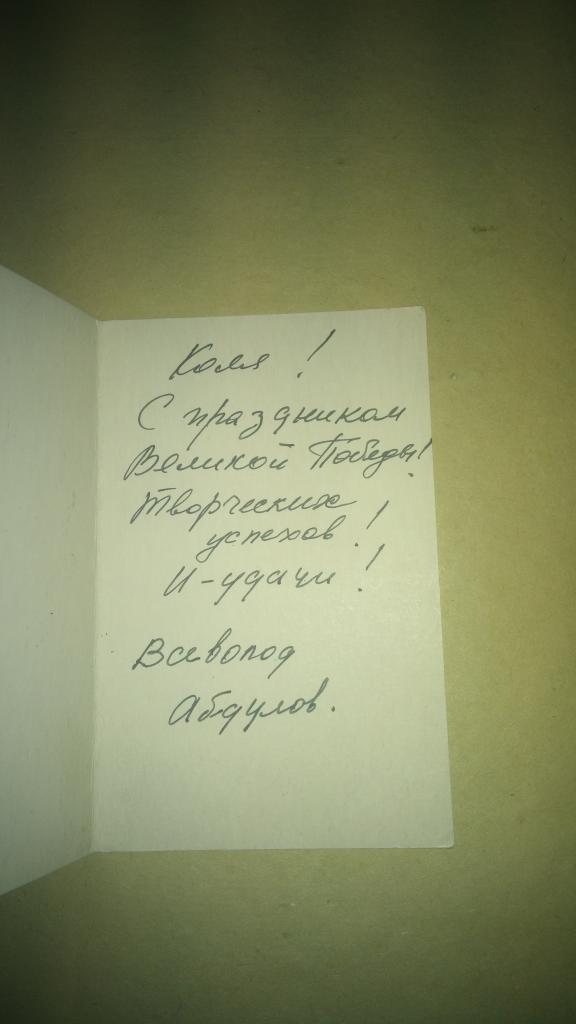 Коля !
С праздником
Великой Победы!
Творческих
успехов !
И - удачи !
Всеволод
Абдулов.